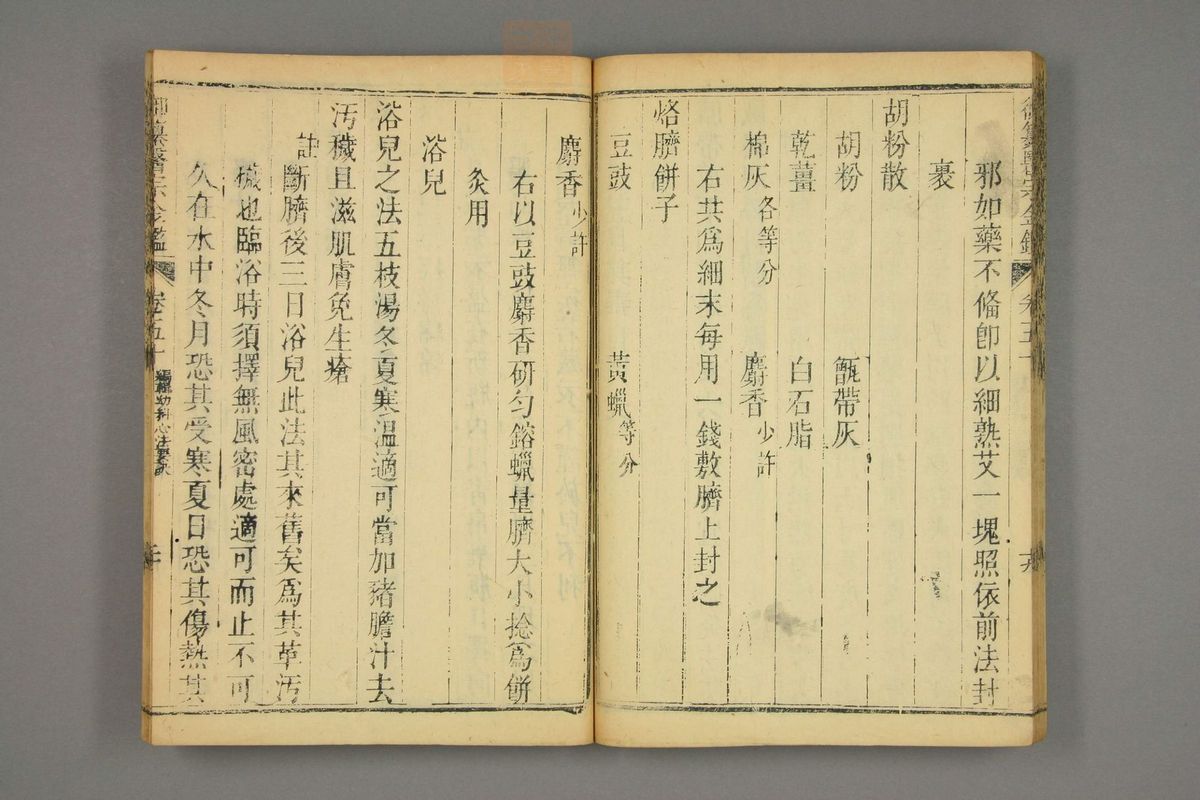 御纂醫宗金鑑 卷五十
邪如藥不備卽以細熟艾一塊照依前法封
裹
胡粉散
胡粉 甑帶灰
乾薑 白石脂
棉灰各等分 麝香少許
右共爲細末每用一錢敷臍上封之
烙臍餅子
豆豉 黃蠟等分
麝香少許
右以豆豉麝香研勻鎔蠟量臍大小捻爲餅
灸用
浴兒
浴兒之法五枝湯冬夏寒温適可當加豬膽汁去
汚穢且滋肌膚免生瘡
註斷臍後三日浴兒此法其來舊矣爲其革汚
穢也臨浴時須擇無風密處適可而止不可
久在水中冬月恐其受寒夏日恐其傷熱其
御纂醫宗金鑑 卷五十 編輯幼科心法要訣